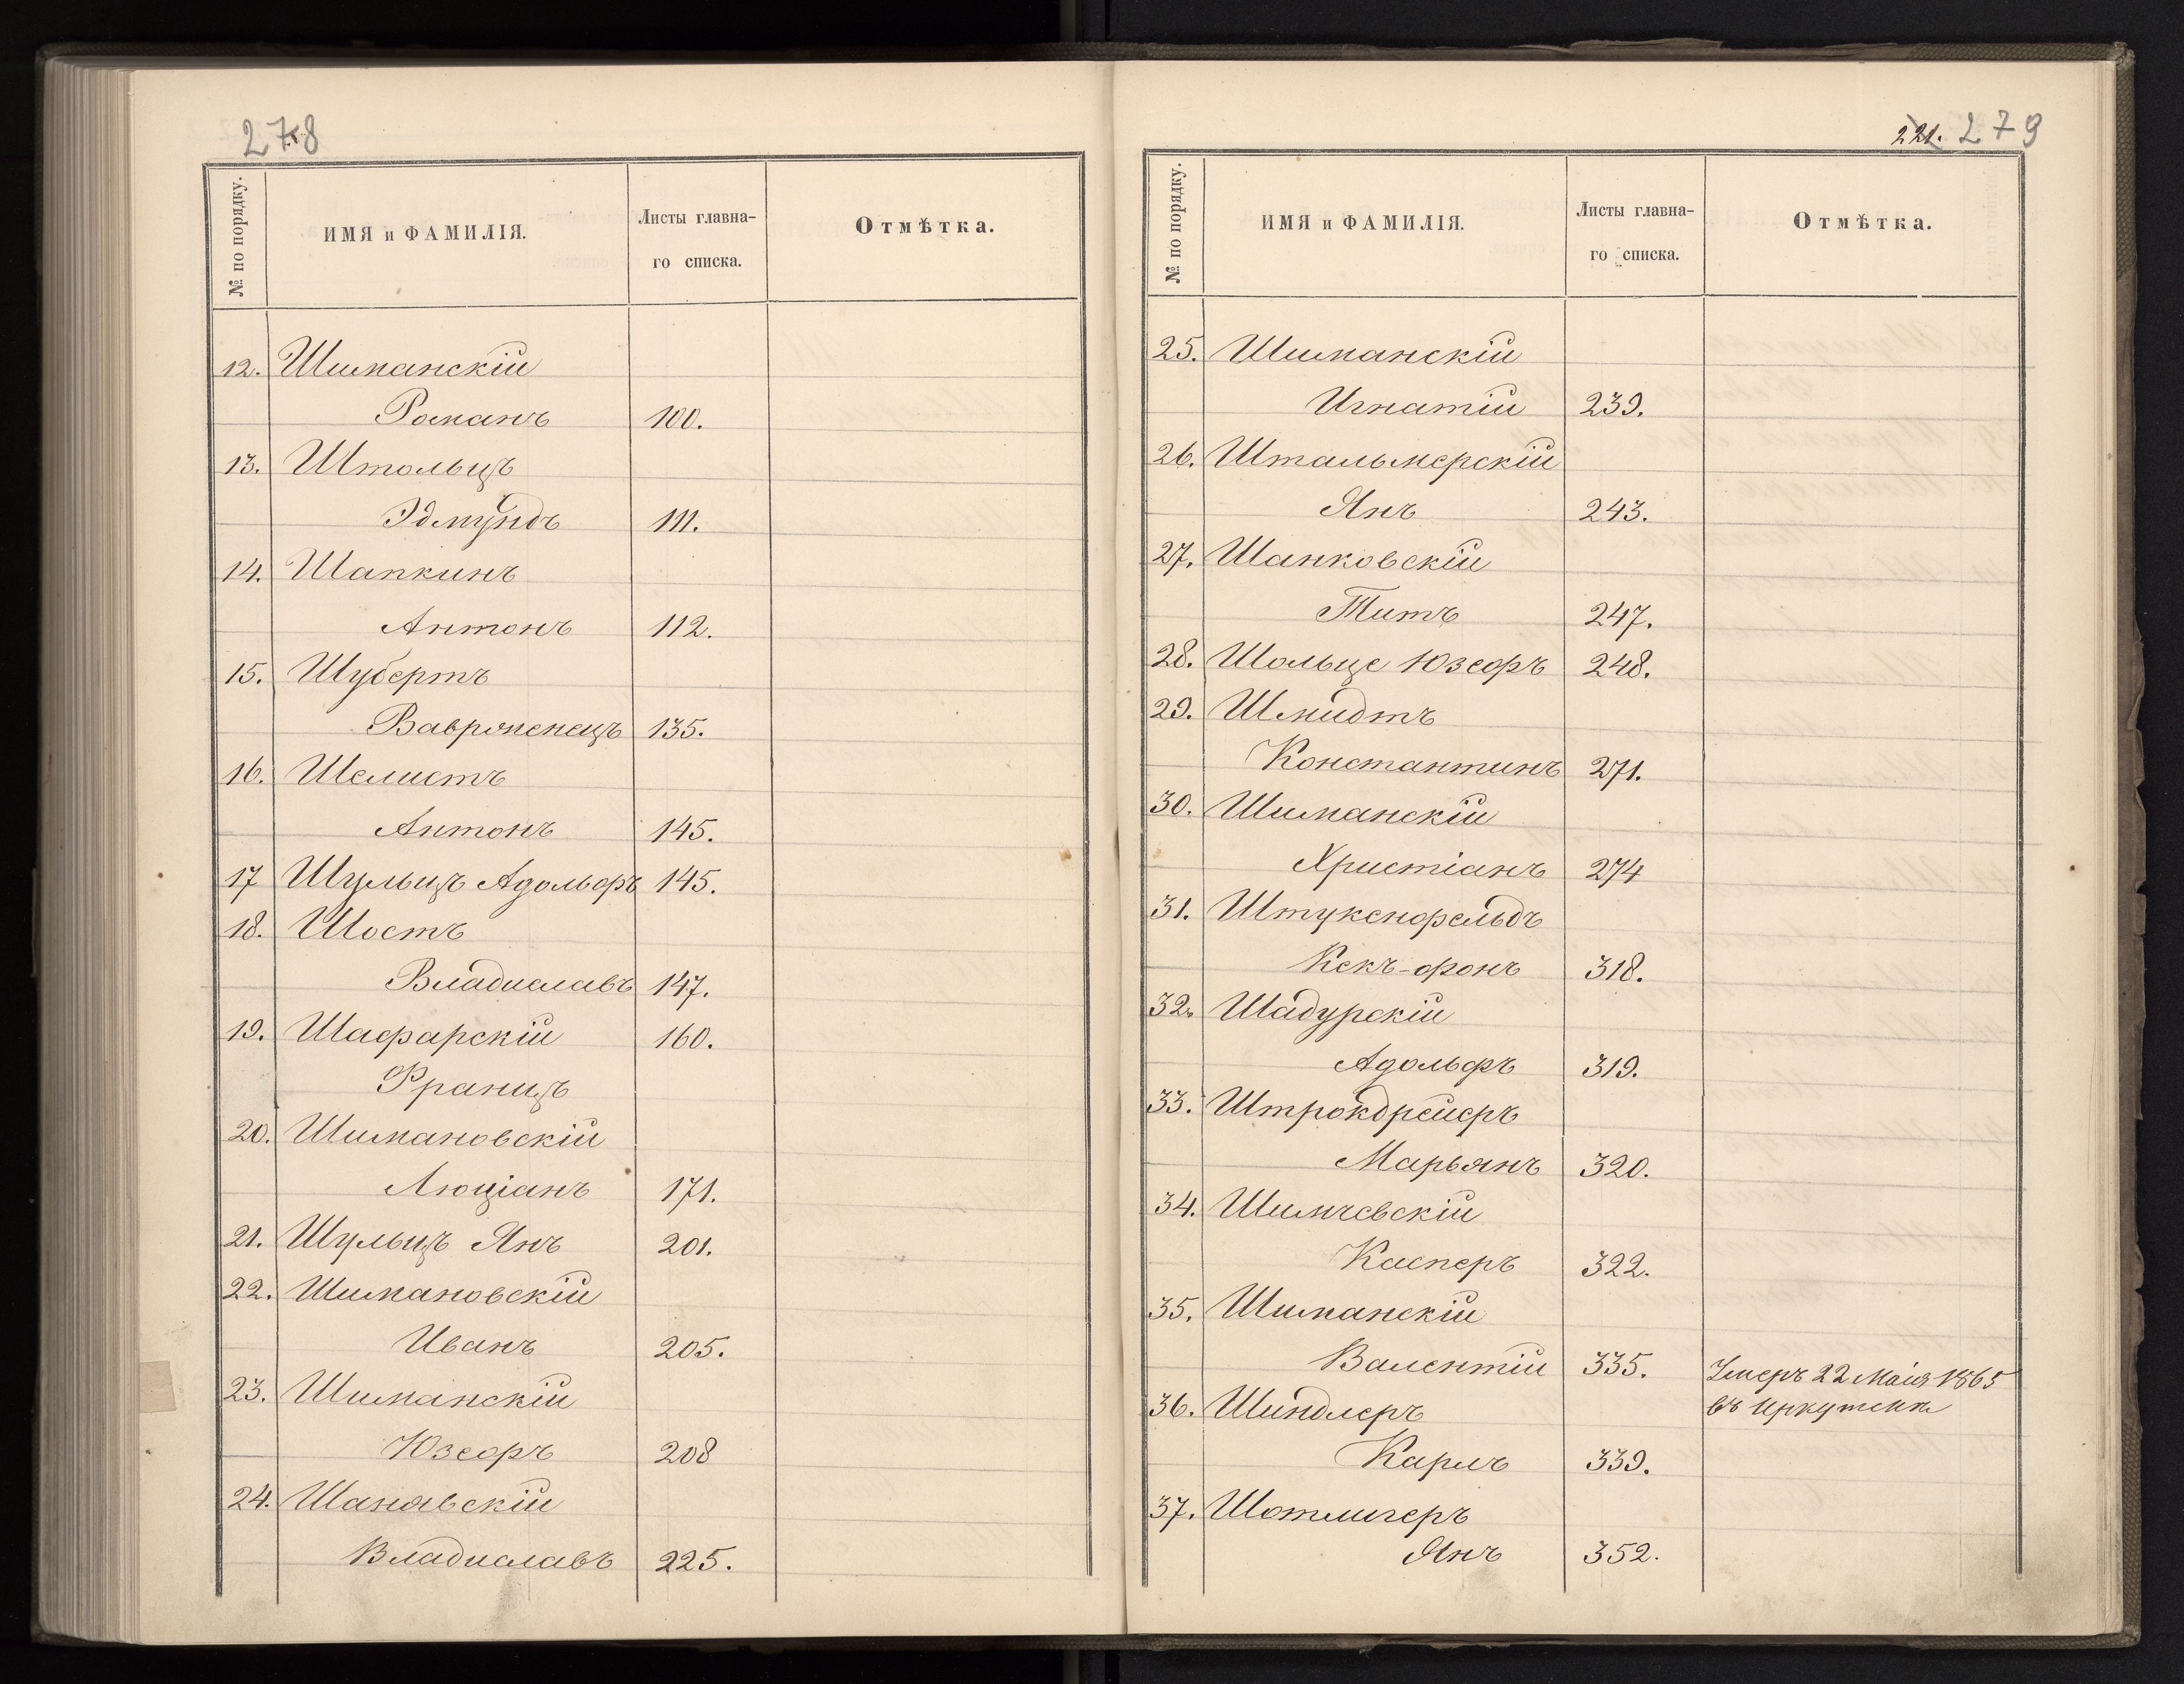 278
№ по порядку.
ИМЯ и ФАМИЛІЯ.
Листы главна-
го списка.
Отмѣтка.
12. Шиманскій
Романъ 100.
13. Штольцъ
Эдмундъ 111.
14. Шапкинъ
Антонъ 112.
15. Шубертъ
135.
16. Шелистъ
Антонъ 145.
17 Шульцъ Адольфъ 145.
18. Шостъ
Владиславъ 147.
19. Шафарскій 160.
Францъ
20. Шимановскій
Люціанъ 171.
21. Шульцъ Янъ 201.
22. Шимановскій
Иванъ 205.
23. Шиманскій
Юзефъ 208
24. Шанявскій
Владиславъ 225.
221. 279
№ по порядку.
ИМЯ и ФАМИЛІЯ.
Листы главна-
го списка.
Отмѣтка.
25. Шиманскій
Игнатій 239.
26. Штальмерскій
Янъ 243.
27. Шанковскій
Титъ 247.
28. Шольце Юзефъ 248.
29. Шмидтъ
Константинъ 271.
30. Шиманскій
Христіанъ 274
31. Штукенфельдъ
Кекъ-фонъ 318.
32. Шадурскій
Адольфъ 319.
33. Штрокдрейеръ
Марьянъ 320.
34. Шимчевскій
Касперъ 322.
35. Шиманскій
Валентій 335. Умеръ 22 Маія 1865
36. Шиндлеръ въ Иркутскѣ
Карлъ 339.
37. Шотлигеръ
Янъ 352.